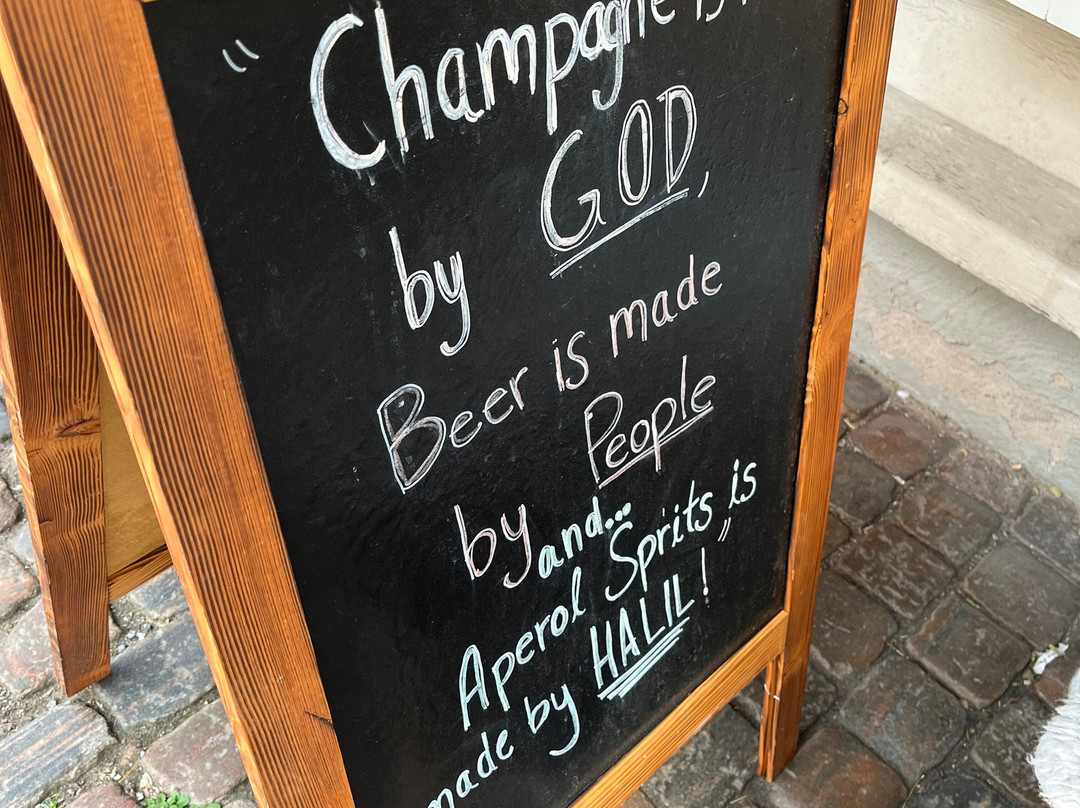 " Champagne is
by GOD,
Beer is made
by People
and...
Aperol Sprits is "
made by HALIL!